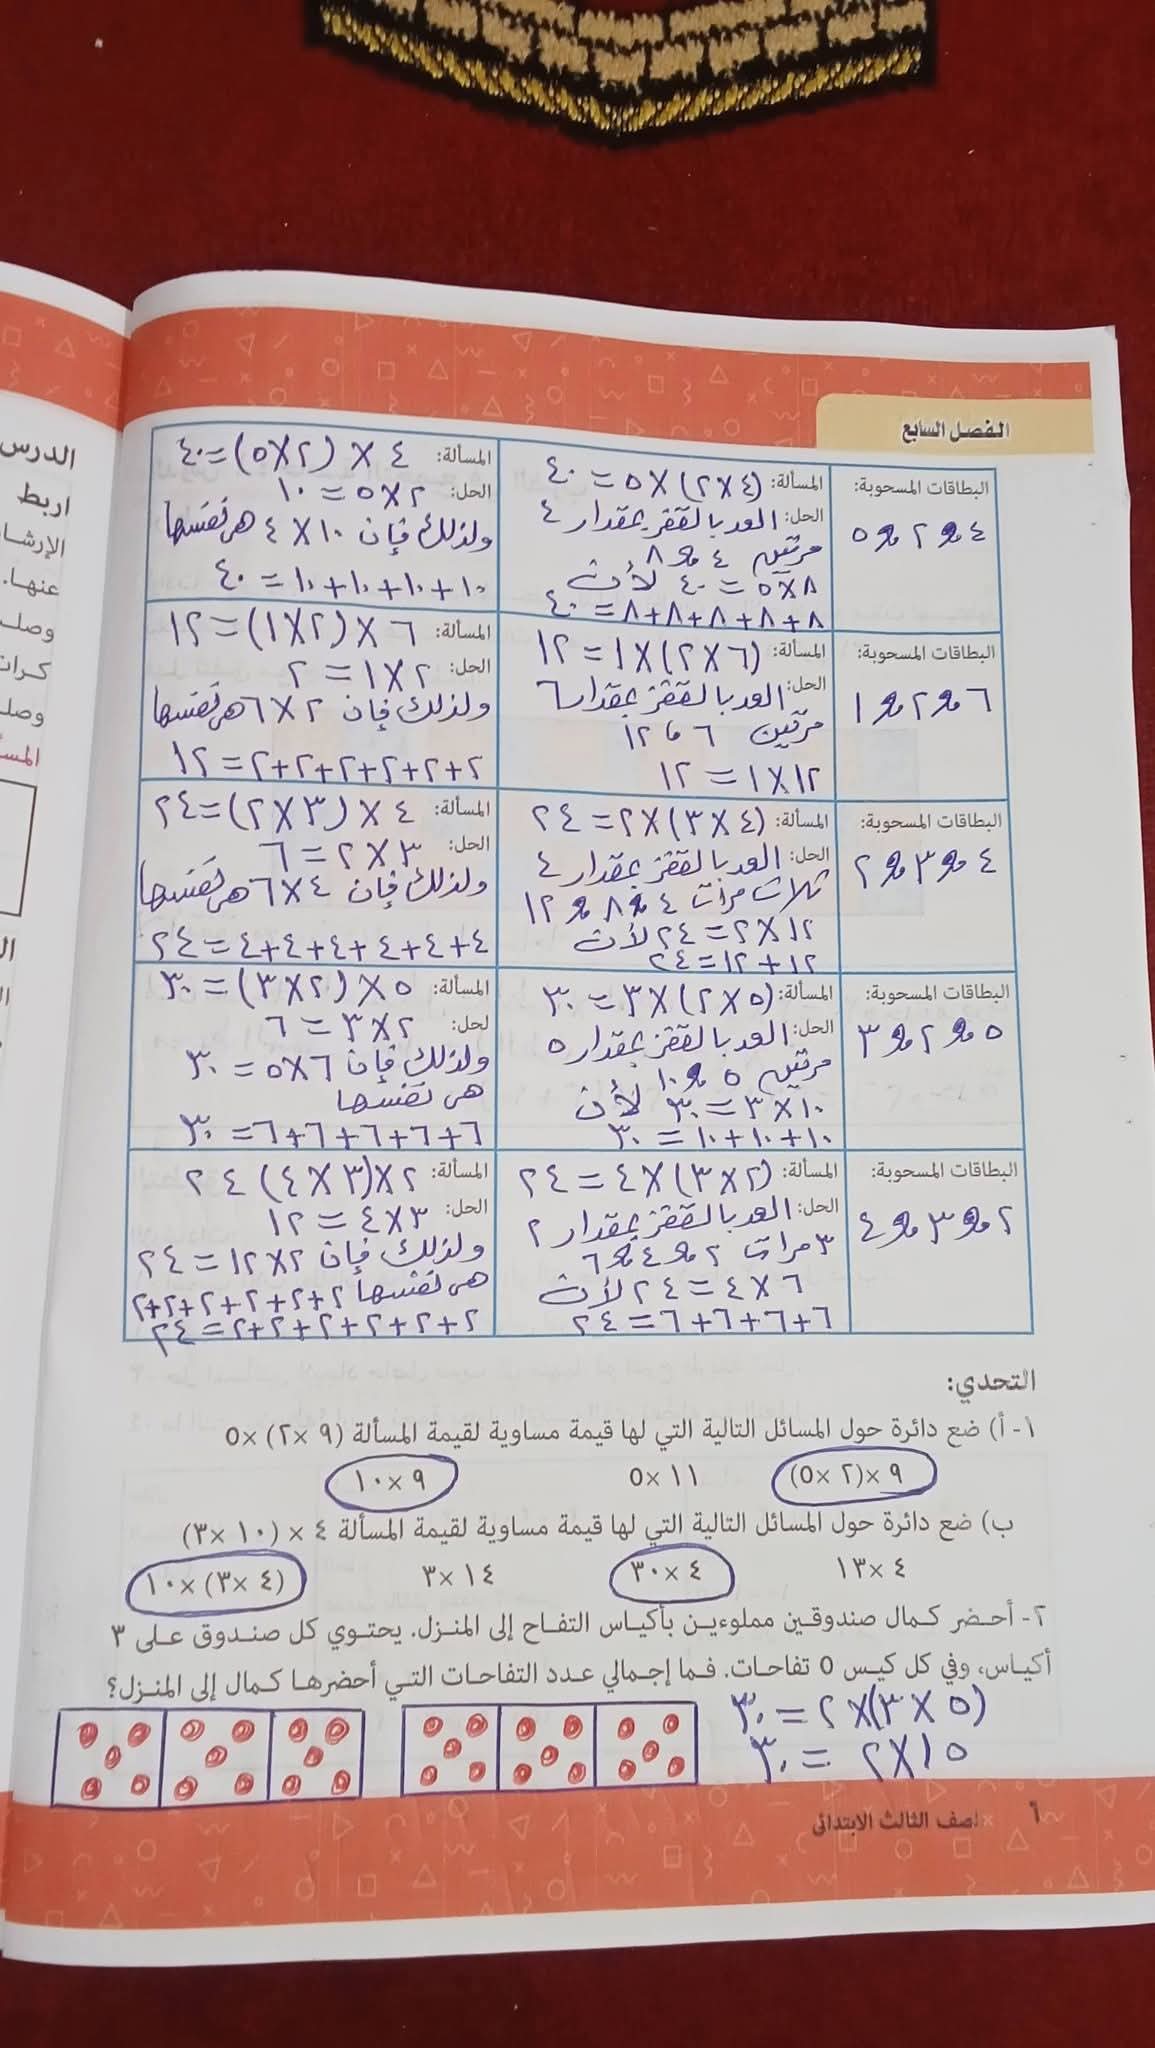 الفصل السابع
البطاقات المسحوبة:
٤ و ٢ و ٥
المسألة: (٤×٢)×٥=٤٠
الحل: العد بالقفز بمقدار ٤
مرتين ٤ و ٨
٨×٥=٤٠ لأن
٨+٨+٨+٨+٨=٤٠
المسألة: ٤×(٢×٥)=٤٠
الحل: ٢×٥=١٠
ولذلك فإن ١٠×٤ هي نفسها
١٠+١٠+١٠+١٠=٤٠
البطاقات المسحوبة:
٦ و ٢ و ١
المسألة: (٦×٢)×١=١٢
الحل: العد بالقفز بمقدار ٦
مرتين ٦ و ١٢
١٢×١=١٢
المسألة: ٦×(٢×١)=١٢
الحل: ٢×١=٢
ولذلك فإن ٢×٦ هي نفسها
٢+٢+٢+٢+٢+٢=١٢
البطاقات المسحوبة:
٤ و ٣ و ٢
المسألة: (٤×٣)×٢=٢٤
الحل: العد بالقفز بمقدار ٤
ثلاث مرات ٤ و ٨ و ١٢
١٢×٢=٢٤ لأن
١٢+١٢=٢٤
المسألة: ٤×(٣×٢)=٢٤
الحل: ٣×٢=٦
ولذلك فإن ٤×٦ هي نفسها
٤+٤+٤+٤+٤+٤=٢٤
البطاقات المسحوبة:
٥ و ٢ و ٣
المسألة: (٥×٢)×٣=٣٠
الحل: العد بالقفز بمقدار ٥
مرتين ٥ و ١٠
١٠×٣=٣٠ لأن
١٠+١٠+١٠=٣٠
المسألة: ٥×(٢×٣)=٣٠
لحل: ٢×٣=٦
ولذلك فإن ٦×٥=٣٠
هي نفسها
٦+٦+٦+٦+٦=٣٠
البطاقات المسحوبة:
٢ و ٣ و ٤
المسألة: (٢×٣)×٤=٢٤
الحل: العد بالقفز بمقدار ٢
٣ مرات ٢ و ٤ و ٦
٦×٤=٢٤ لأن
٦+٦+٦+٦=٢٤
المسألة: ٢×(٣×٤) ٢٤
الحل: ٣×٤=١٢
ولذلك فإن ٢×١٢=٢٤
هي نفسها ٢+٢+٢+٢+٢+٢
٢+٢+٢+٢+٢+٢=٢٤
التحدي:
١- أ) ضع دائرة حول المسائل التالية التي لها قيمة مساوية لقيمة المسألة (٩ ×٢) ×٥
٩ ×(٢ ×٥) ١١ ×٥ ٩ ×١٠
ب) ضع دائرة حول المسائل التالية التي لها قيمة مساوية لقيمة المسألة ٤ × (١٠ ×٣)
٤ ×١٣ ٤ ×٣٠ ١٤ ×٣ (٤ ×٣) ×١٠
٢- أحضر كمال صندوقين مملوءين بأكياس التفاح إلى المنزل. يحتوي كل صندوق على ٣
أكياس، وفي كل كيس ٥ تفاحات. فما إجمالي عدد التفاحات التي أحضرها كمال إلى المنزل؟
(٥×٣)×٢=٣٠
١٥×٢=٣٠
٦ لصف الثالث الابتدائي
الدرس
اربط
الإرشا
عنها.
وصل
كرات
وصل
المسأ